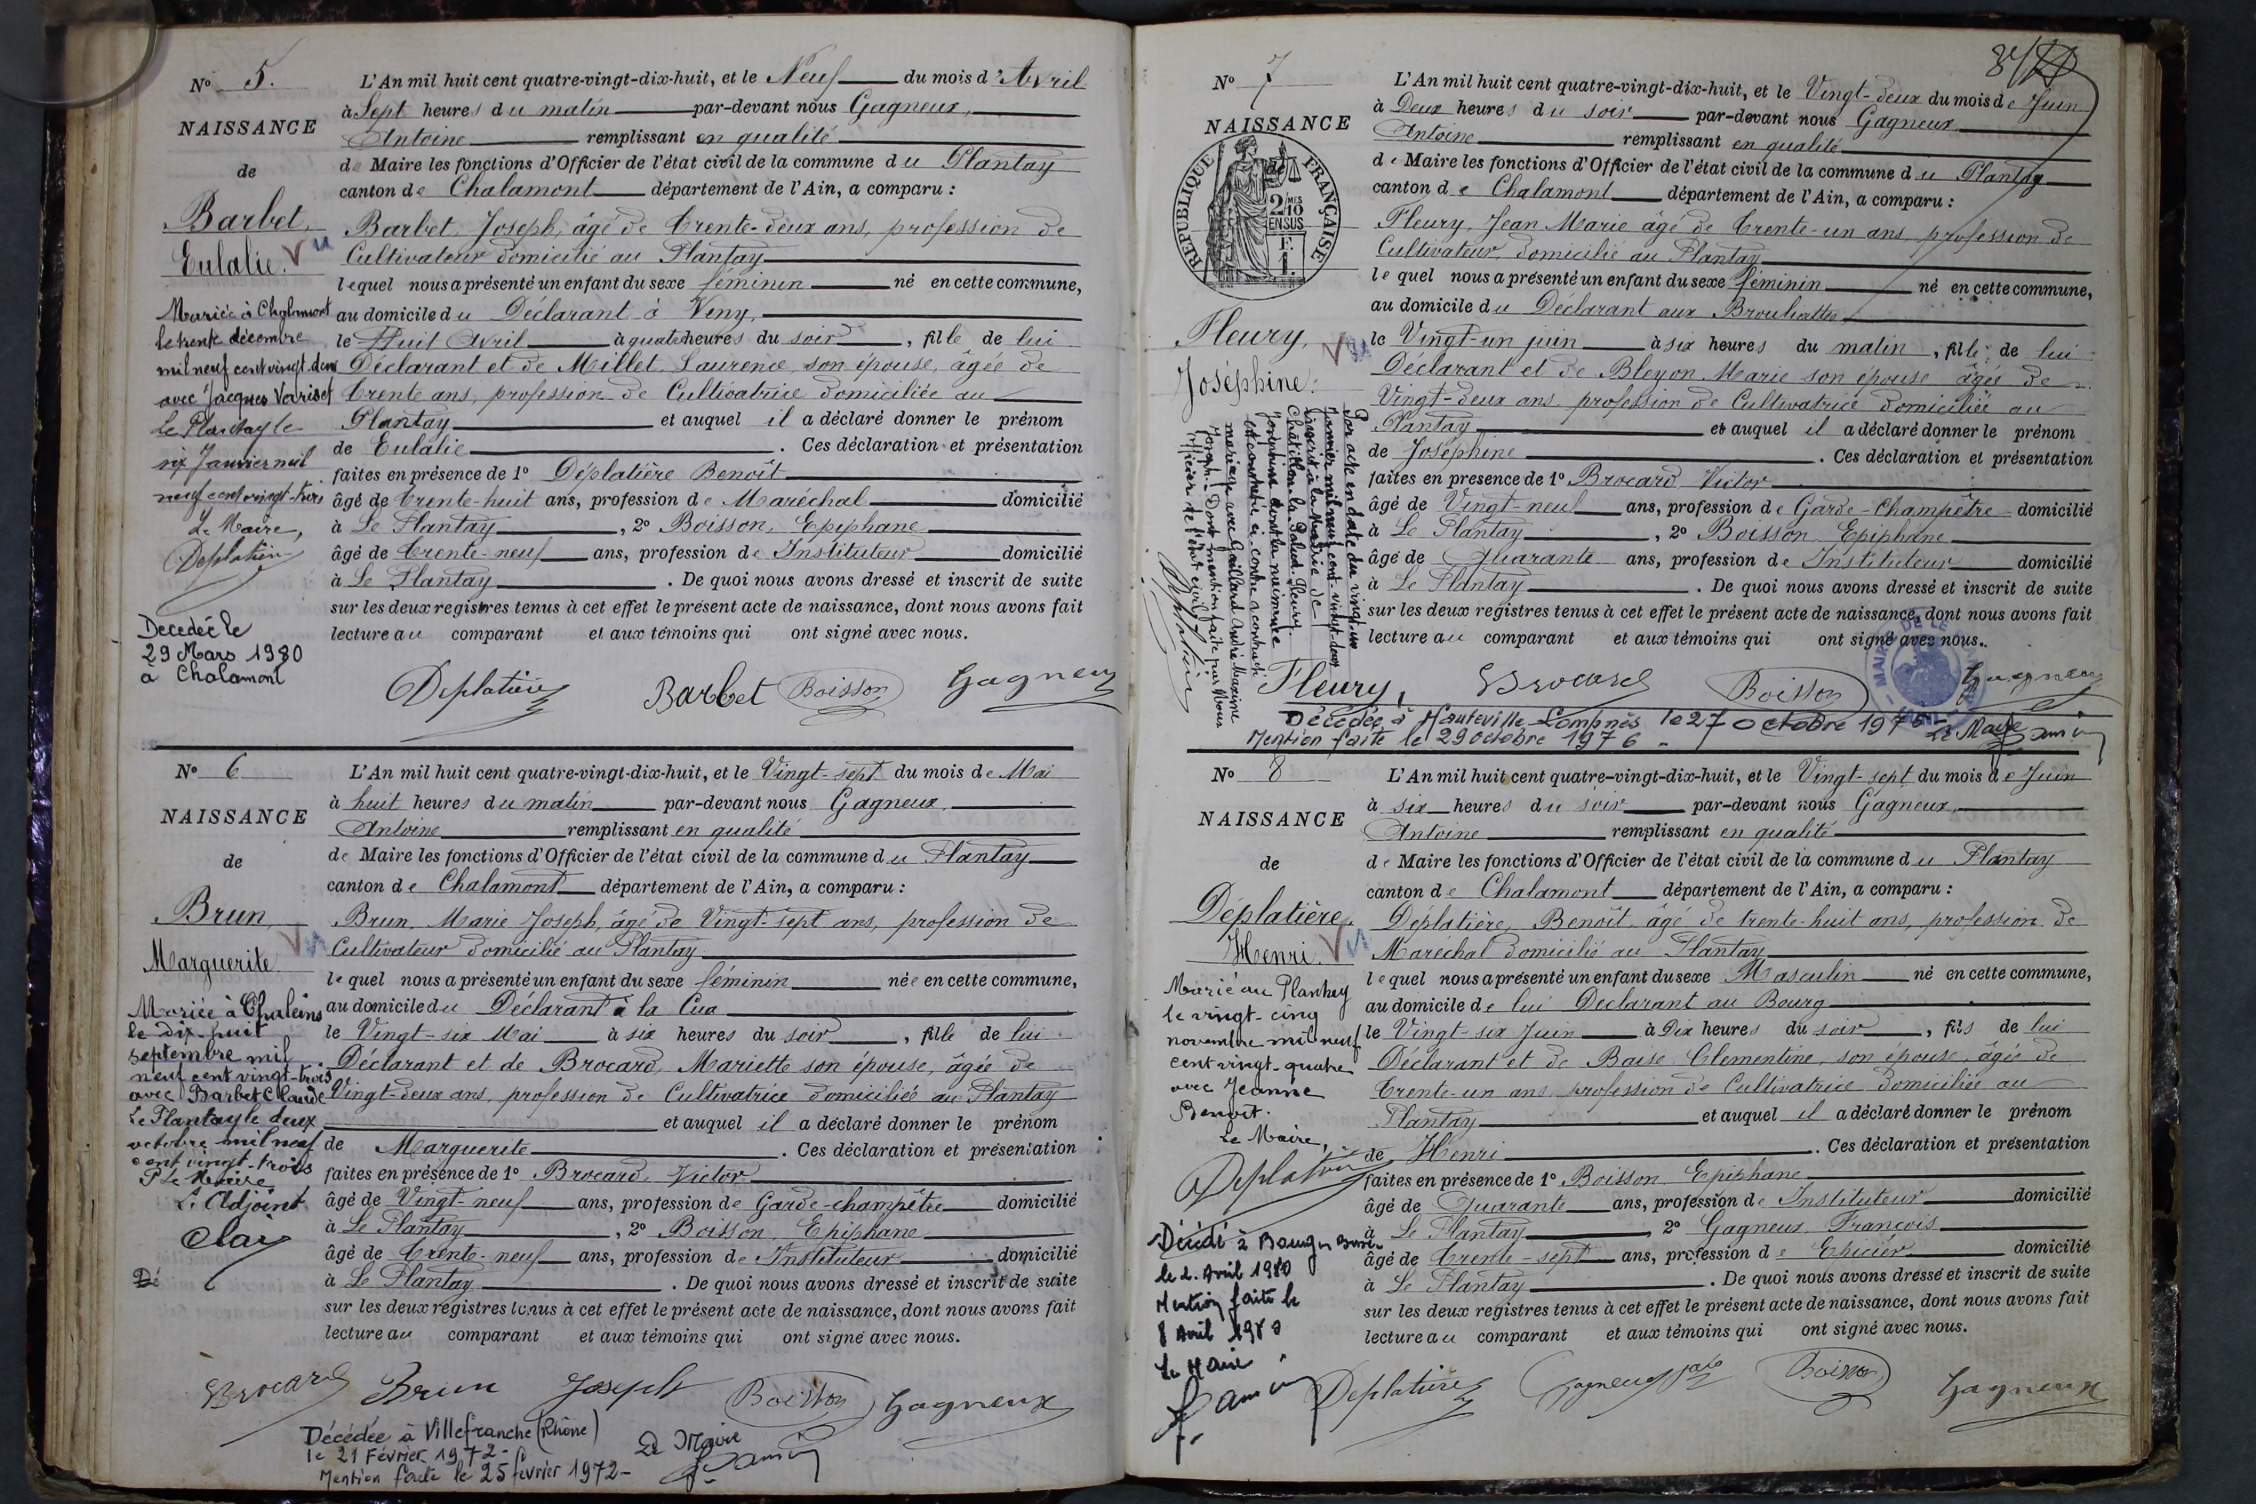 No 5.
NAISSANCE
de
Barbet,
Eulalie.
Vu
Mariée à Chalamont
le trente décembre
mil neuf cent vingt-deux
avec Jacques Variset
Le Plantay le
six Janvier mil
neuf cent vingt-trois
Le Maire,
Déplatière
Décédée le
29 Mars 1980
à Chalamont
L'An mil huit cent quatre-vingt-dix-huit, et le Neuf du mois d'Avril
à Sept heures du matin par-devant nous Gagneux,
Antoine remplissant en qualité
de Maire les fonctions d'Officier de l'état civil de la commune du Plantay
canton de Chalamont département de l'Ain, a comparu :
Barbet, Joseph, âgé de trente-deux ans, profession de
Cultivateur domicilié au Plantay
lequel nous a présenté un enfant du sexe féminin né en cette commune,
au domicile du Déclarant à Veny,
le Huit Avril à quatre heures du soir, fille de lui
Déclarant et de Millet, Laurence, son épouse, âgée de
trente ans, profession de Cultivatrice domiciliée au
Plantay et auquel il a déclaré donner le prénom
de Eulalie. Ces déclaration et présentation
faites en présence de 1° Déplatière Benoît
âgé de trente-huit ans, profession de Maréchal domicilié
à Le Plantay, 2° Boisson, Epiphane
âgé de trente-neuf ans, profession de Instituteur domicilié
à Le Plantay. De quoi nous avons dressé et inscrit de suite
sur les deux registres tenus à cet effet le présent acte de naissance, dont nous avons fait
lecture au comparant et aux témoins qui ont signé avec nous.
Deplatière Barbet Boisson Gagneux
No 6
NAISSANCE
de
Brun,
Marguerite.
Vu
Mariée à Chaleins
le dix-huit
septembre mil
neuf cent vingt-trois
avec Barbet Claude
Le Plantay le deux
octobre mil neuf
cent vingt-trois
P. Le Maire
L'Adjoint
Clay
Dé
L'An mil huit cent quatre-vingt-dix-huit, et le Vingt-sept du mois de Mai
à huit heures du matin par-devant nous Gagneux,
Antoine remplissant en qualité
de Maire les fonctions d'Officier de l'état civil de la commune du Plantay
canton de Chalamont département de l'Ain, a comparu :
Brun, Marie Joseph, âgé de Vingt-sept ans, profession de
Cultivateur domicilié au Plantay
lequel nous a présenté un enfant du sexe féminin née en cette commune,
au domicile du Déclarant à la Cua
le Vingt-six Mai à six heures du soir, fille de lui
Déclarant et de Brocard, Mariette son épouse, âgée de
Vingt-deux ans, profession de Cultivatrice domiciliée au Plantay
et auquel il a déclaré donner le prénom
de Marguerite. Ces déclaration et présentation
faites en présence de 1° Brocard, Victor
âgé de Vingt-neuf ans, profession de Garde-champêtre domicilié
à Le Plantay, 2° Boisson, Epiphane
âgé de trente-neuf ans, profession de Instituteur domicilié
à Le Plantay. De quoi nous avons dressé et inscrit de suite
sur les deux registres tenus à cet effet le présent acte de naissance, dont nous avons fait
lecture au comparant et aux témoins qui ont signé avec nous.
Brocard Brun Joseph Boisson Gagneux
Décédée à Villefranche (Rhône)
le 21 Février 1972-
Mention faite le 25 février 1972-
Le Maire
No 7
NAISSANCE
de
REPUBLIQUE FRANÇAISE
2 MES 10
EN SUS
F.
1.
Fleury,
Joséphine.
Vu
Par acte en date du vingt-un
Janvier mil neuf cent vingt-deux
inscrit à la Mairie de
Châtillon-la-Palud, Fleury
Joséphine dont la naissance
est constatée ci-contre a contracté
mariage avec Gaillard André Maxime
Joseph.- Dont mention faite par Nous
officier de l'état civil
Déplatière
L'An mil huit cent quatre-vingt-dix-huit, et le Vingt-deux du mois de Juin
à Deux heures du soir par-devant nous Gagneux
Antoine remplissant en qualité
de Maire les fonctions d'Officier de l'état civil de la commune du Plantay
canton de Chalamont département de l'Ain, a comparu :
Fleury, Jean Marie âgé de trente-un ans profession de
Cultivateur, domicilié au Plantay
lequel nous a présenté un enfant du sexe féminin né en cette commune,
au domicile du Déclarant aux Brouhattes
le Vingt-un juin à six heures du matin, fille de lui
Déclarant et de Bleyon Marie son épouse âgée de
Vingt-deux ans profession de Cultivatrice domiciliée au
Plantay et auquel il a déclaré donner le prénom
de Joséphine. Ces déclaration et présentation
faites en présence de 1° Brocard Victor
âgé de Vingt-neuf ans, profession de Garde-Champêtre domicilié
à Le Plantay, 2° Boisson Epiphane
âgé de Quarante ans, profession de Instituteur domicilié
à Le Plantay. De quoi nous avons dressé et inscrit de suite
sur les deux registres tenus à cet effet le présent acte de naissance, dont nous avons fait
lecture au comparant et aux témoins qui ont signé avec nous.
Fleury, Brocard Boisson Gagneux
Décédée à Hauteville-Lompnès le 27 octobre 1976-
Mention faite le 29 octobre 1976 -
Le Maire
No 8
NAISSANCE
de
Déplatière,
Henri.
Vu
Marié au Plantay
le vingt-cinq
novembre mil neuf
cent vingt-quatre
avec Jeanne
Benoit.
Le Maire,
Deplatière
Décédé à Bourg en Bresse
le 2 Avril 1980
Mention faite le
8 Avril 1980
Le Maire
L'An mil huit cent quatre-vingt-dix-huit, et le Vingt-sept du mois de Juin
à six heures du soir par-devant nous Gagneux,
Antoine remplissant en qualité
de Maire les fonctions d'Officier de l'état civil de la commune du Plantay
canton de Chalamont département de l'Ain, a comparu :
Deplatière, Benoît âgé de trente-huit ans, profession de
Maréchal domicilié au Plantay
lequel nous a présenté un enfant du sexe Masculin né en cette commune,
au domicile de lui Déclarant au Bourg
le Vingt-six Juin à Dix heures du soir, fils de lui
Déclarant et de Baise Clementine, son épouse, âgée de
trente-un ans profession de Cultivatrice domiciliée au
Plantay et auquel il a déclaré donner le prénom
de Henri. Ces déclaration et présentation
faites en présence de 1° Boisson Epiphane
âgé de Quarante ans, profession de Instituteur domicilié
à Le Plantay 2° Gagneux François
âgé de trente-sept ans, profession de Epicier domicilié
à Le Plantay. De quoi nous avons dressé et inscrit de suite
sur les deux registres tenus à cet effet le présent acte de naissance, dont nous avons fait
lecture au comparant et aux témoins qui ont signé avec nous.
Deplatière Gagneux fçois Boisson Gagneux